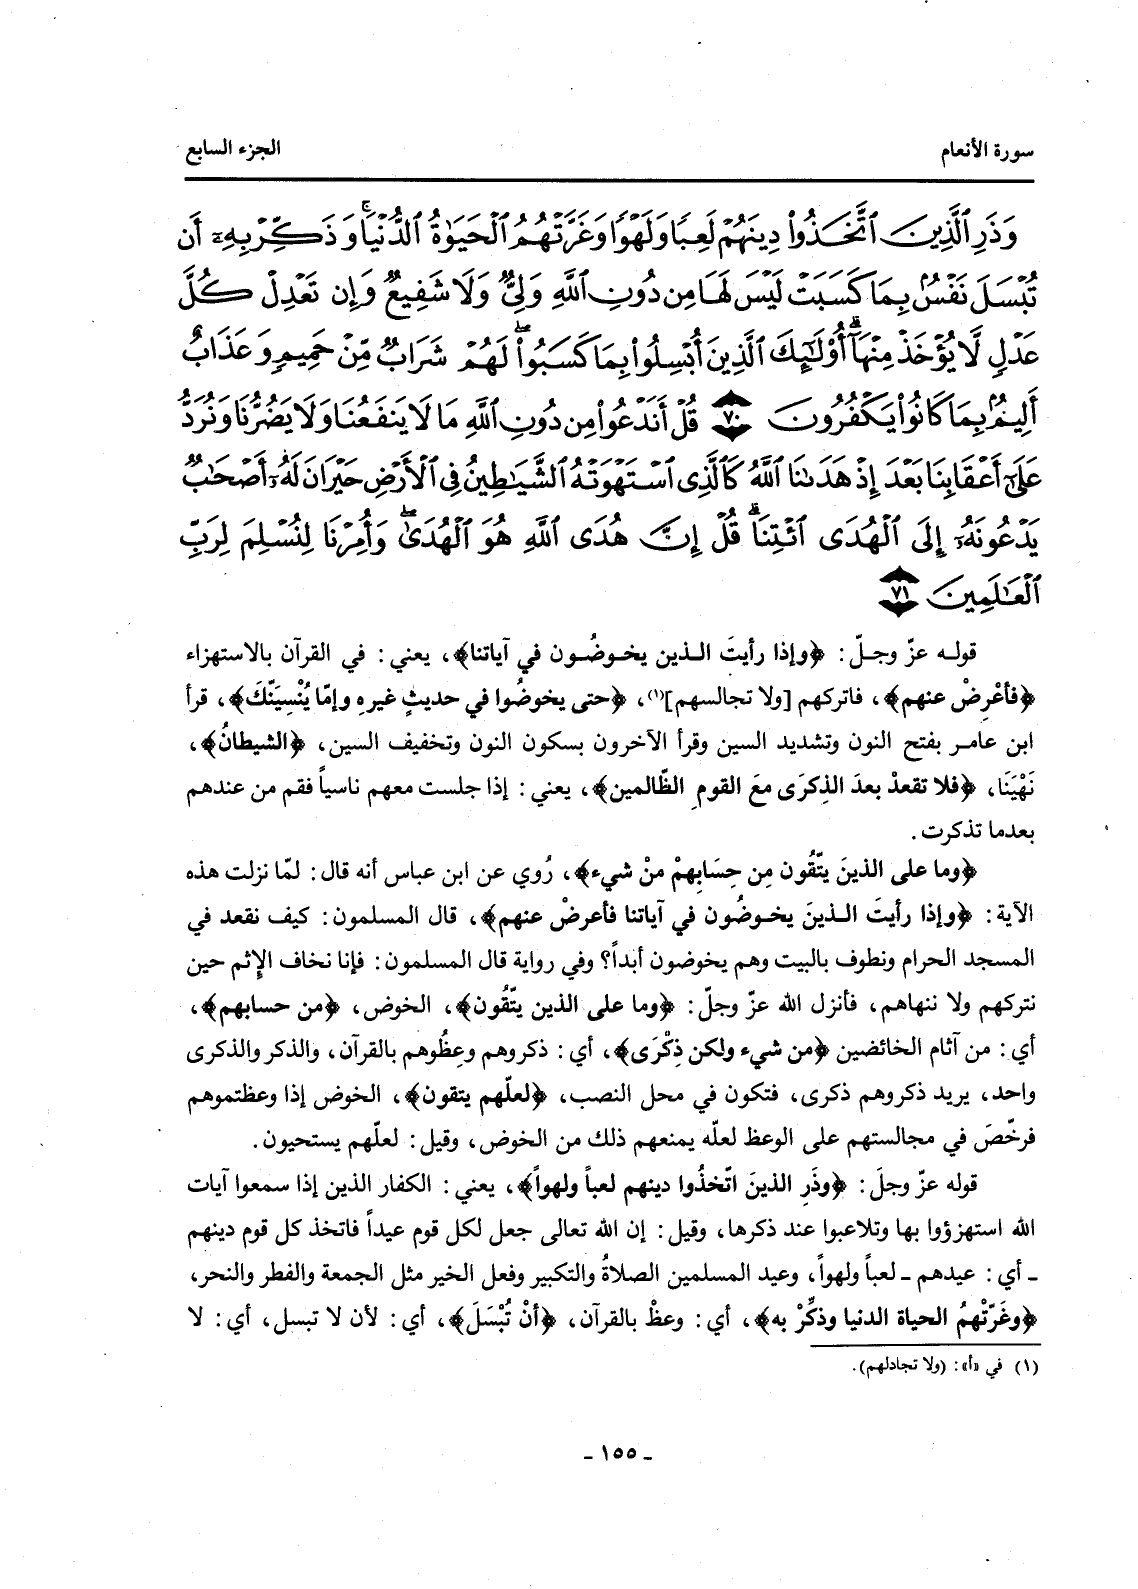 سورة الأنعام
الجزء السابع
وَذَرِ ٱلَّذِينَ ٱتَّخَذُوا۟ دِينَهُمْ لَعِبًا وَلَهْوًا وَغَرَّتْهُمُ ٱلْحَيَوٰةُ ٱلدُّنْيَا ۚ وَذَكِّرْ بِهِۦٓ أَن
تُبْسَلَ نَفْسٌۢ بِمَا كَسَبَتْ لَيْسَ لَهَا مِن دُونِ ٱللَّهِ وَلِىٌّ وَلَا شَفِيعٌ وَإِن تَعْدِلْ كُلَّ
عَدْلٍ لَّا يُؤْخَذْ مِنْهَآ ۗ أُو۟لَـٰٓئِكَ ٱلَّذِينَ أُبْسِلُوا۟ بِمَا كَسَبُوا۟ ۖ لَهُمْ شَرَابٌ مِّنْ حَمِيمٍ وَعَذَابٌ
أَلِيمٌۢ بِمَا كَانُوا۟ يَكْفُرُونَ ٧٠ قُلْ أَنَدْعُوا۟ مِن دُونِ ٱللَّهِ مَا لَا يَنفَعُنَا وَلَا يَضُرُّنَا وَنُرَدُّ
عَلَىٰٓ أَعْقَابِنَا بَعْدَ إِذْ هَدَىٰنَا ٱللَّهُ كَٱلَّذِى ٱسْتَهْوَتْهُ ٱلشَّيَـٰطِينُ فِى ٱلْأَرْضِ حَيْرَانَ لَهُۥٓ أَصْحَـٰبٌ
يَدْعُونَهُۥٓ إِلَى ٱلْهُدَى ٱئْتِنَا ۗ قُلْ إِنَّ هُدَى ٱللَّهِ هُوَ ٱلْهُدَىٰ ۖ وَأُمِرْنَا لِنُسْلِمَ لِرَبِّ
ٱلْعَـٰلَمِينَ ٧١
قولـه عزّ وجلّ: ﴿وإذا رأيتَ الـذين يخـوضُـون في آياتنا﴾، يعني: في القرآن بالاستهزاء
﴿فأعْرِضْ عنهم﴾، فاتركهم [ولا تجالسهم](١)، ﴿حتى يخوضُوا في حديثٍ غيرِهِ وإمّا يُنْسِيَنّكَ﴾، قرأ
ابن عامـر بفتح النون وتشديد السين وقرأ الآخرون بسكون النون وتخفيف السين، ﴿الشيطانُ﴾،
نَهْيَنَا، ﴿فلا تقعدْ بعدَ الذِكرَى معَ القومِ الظّالمين﴾، يعني: إذا جلست معهم ناسياً فقم من عندهم
بعدما تذكرت.
﴿وما على الذينَ يتّقُون مِن حِسَابِهمْ منْ شيء﴾، رُوي عن ابن عباس أنه قال: لمّا نزلت هذه
الآية: ﴿وإذا رأيتَ الـذينَ يخـوضُون في آياتنا فأعرضْ عنهم﴾، قال المسلمون: كيف نقعد في
المسجد الحرام ونطوف بالبيت وهم يخوضون أبداً؟ وفي رواية قال المسلمون: فإنا نخاف الإثم حين
نتركهم ولا ننهاهم، فأنزل الله عزّ وجلّ: ﴿وما على الذين يتّقُون﴾، الخوض، ﴿من حسابهم﴾،
أي: من آثام الخائضين ﴿من شيء ولكن ذِكْرَى﴾، أي: ذكروهم وعِظُوهم بالقرآن، والذكر والذكرى
واحد، يريد ذكروهم ذكرى، فتكون في محل النصب، ﴿لعلّهم يتقون﴾، الخوض إذا وعظتموهم
فرخّصَ في مجالستهم على الوعظ لعلّه يمنعهم ذلك من الخوض، وقيل: لعلّهم يستحيون.
قوله عزّ وجلَ: ﴿وذَرِ الذينَ اتّخذُوا دينهم لعباً ولهواً﴾، يعني: الكفار الذين إذا سمعوا آيات
الله استهزؤوا بها وتلاعبوا عند ذكرها، وقيل: إن الله تعالى جعل لكل قوم عيداً فاتخذ كل قوم دينهم
ـ أي: عيدهم ـ لعباً ولهواً، وعيد المسلمين الصلاةُ والتكبير وفعل الخير مثل الجمعة والفطر والنحر،
﴿وغَرّتْهمُ الحياة الدنيا وذكِّرْ به﴾، أي: وعظْ بالقرآن، ﴿أنْ تُبْسَلَ﴾، أي: لأن لا تبسل، أي: لا
(١) في «أ»: (ولا تجادلهم).
ـ ١٥٥ ـ